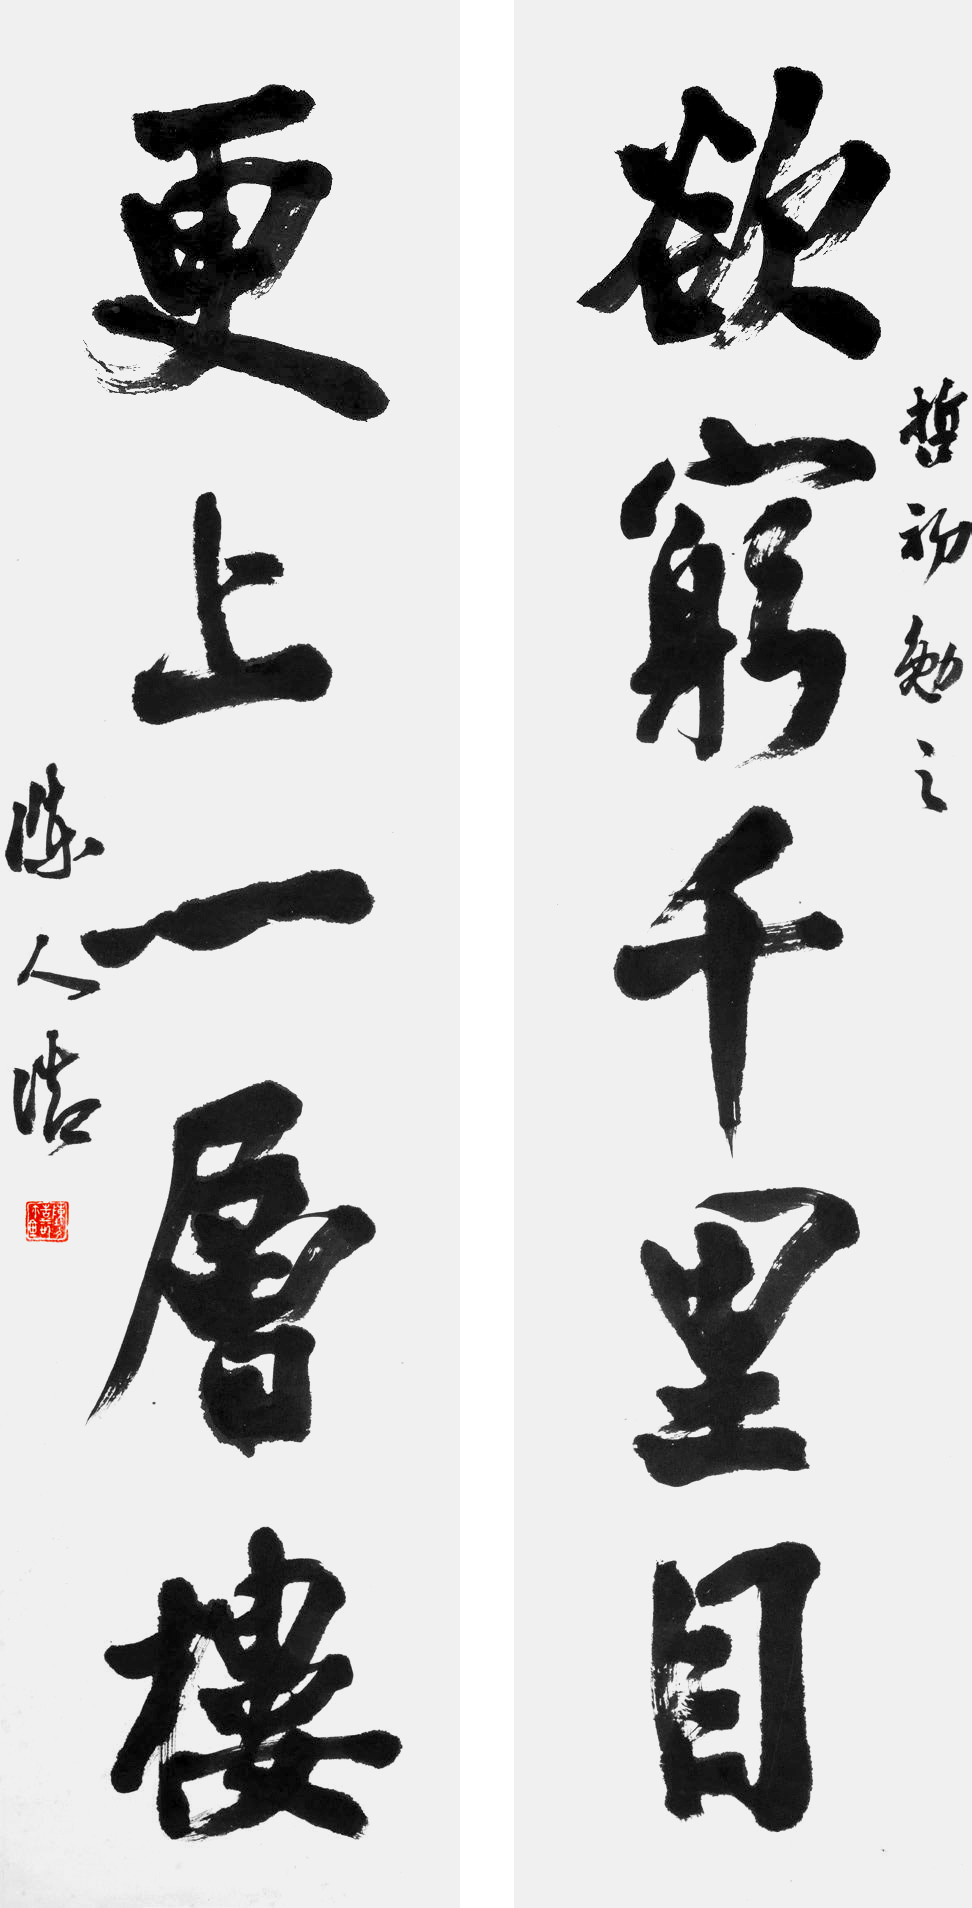 哲初勉之
欲窮千里目
更上一層樓
陳人浩